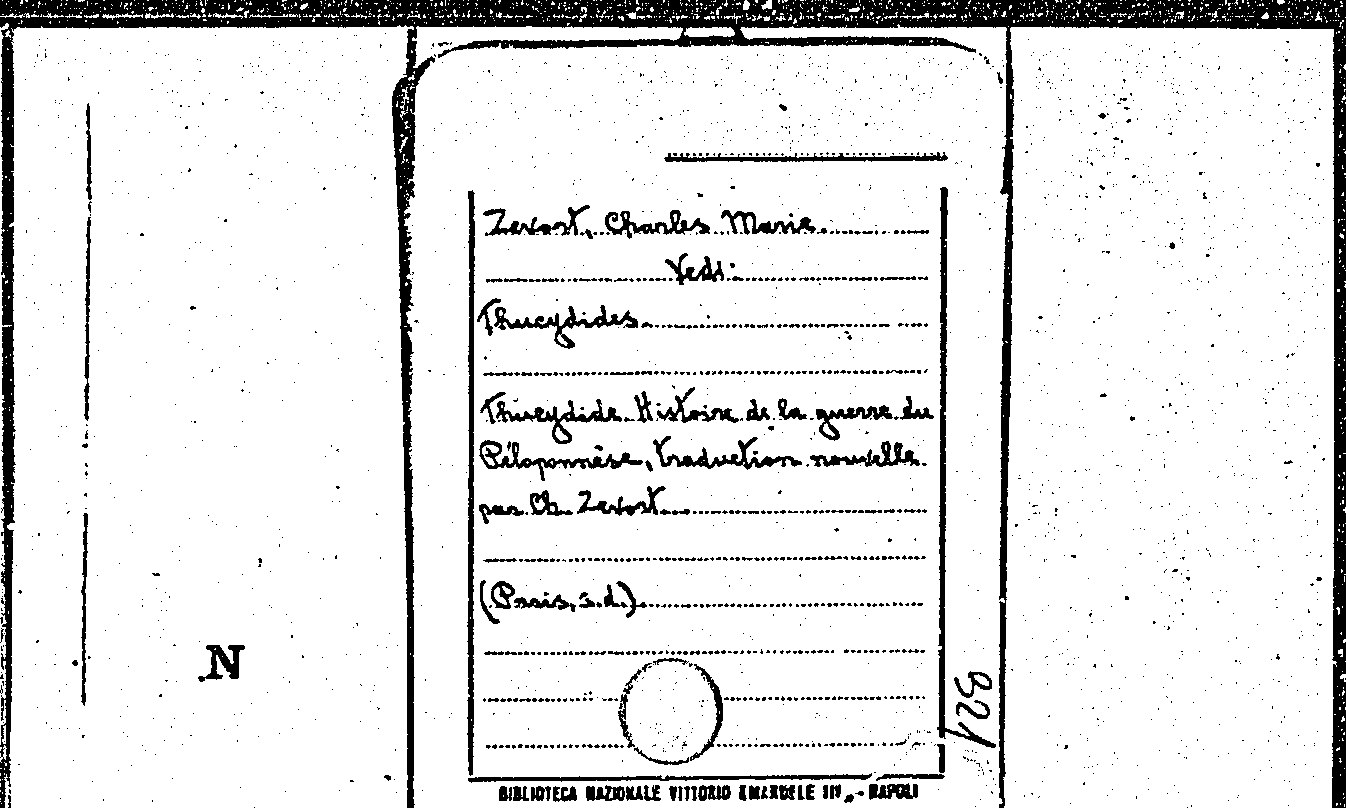 Zevort, Charles Marie.
Vedi:
Thucydides.
Thucydide. Histoire de la guerre du
Péloponnèse, traduction nouvelle
par Ch. Zevort.
(Paris, s.d.).
N
321
BIBLIOTECA NAZIONALE VITTORIO EMANUELE III" - NAPOLI